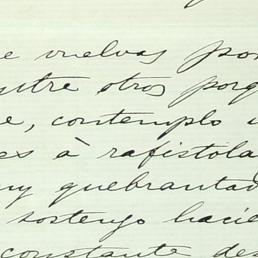 e vuelvas por
ntre otros porq
e, contemplo
es à rafistola
uy quebrantad
sostengo hacie
constante des